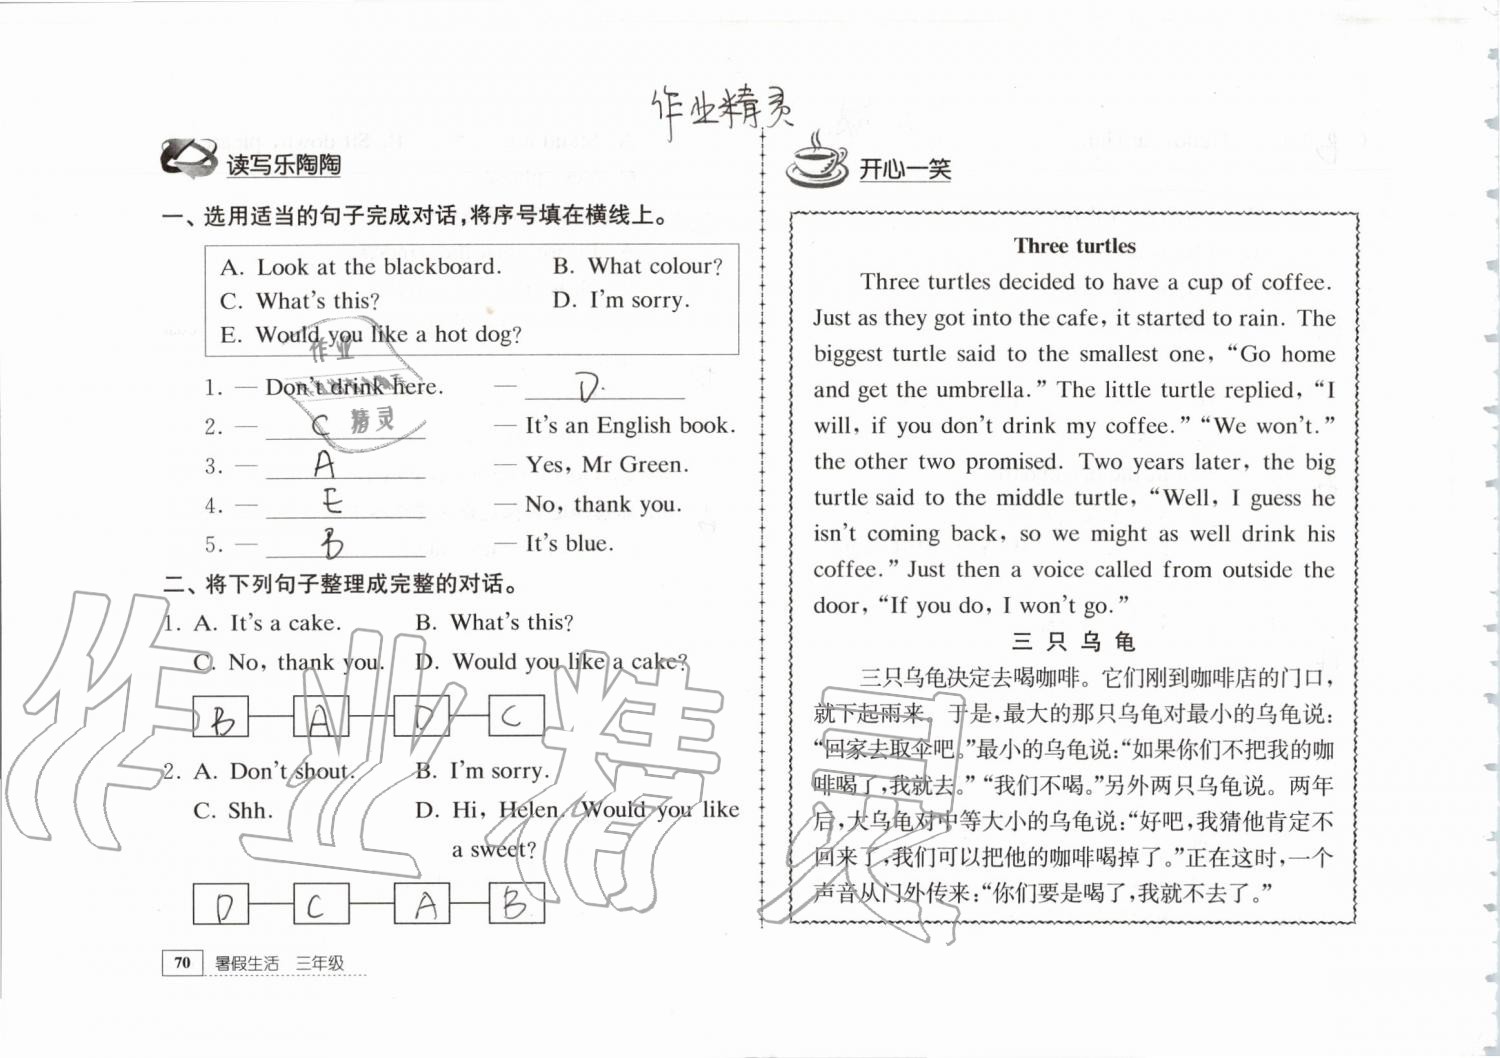 作业精灵
读写乐陶陶
一、选用适当的句子完成对话,将序号填在横线上。
A. Look at the blackboard. B. What colour?
C. What's this? D. I'm sorry.
E. Would you like a hot dog?
1. — Don't drink here. — D.
2. — C — It's an English book.
3. — A — Yes, Mr Green.
4. — E — No, thank you.
5. — B — It's blue.
二、将下列句子整理成完整的对话。
1. A. It's a cake. B. What's this?
C. No, thank you. D. Would you like a cake?
B A D C
2. A. Don't shout. B. I'm sorry.
C. Shh. D. Hi, Helen. Would you like
a sweet?
D C A B
70 暑假生活 三年级
开心一笑
Three turtles
Three turtles decided to have a cup of coffee.
Just as they got into the cafe, it started to rain. The
biggest turtle said to the smallest one, “Go home
and get the umbrella.” The little turtle replied, “I
will, if you don't drink my coffee.” “We won't.”
the other two promised. Two years later, the big
turtle said to the middle turtle, “Well, I guess he
isn't coming back, so we might as well drink his
coffee.” Just then a voice called from outside the
door, “If you do, I won't go.”
三只乌龟
三只乌龟决定去喝咖啡。它们刚到咖啡店的门口,
就下起雨来。于是,最大的那只乌龟对最小的乌龟说:
“回家去取伞吧。”最小的乌龟说:“如果你们不把我的咖
啡喝了,我就去。”“我们不喝。”另外两只乌龟说。两年
后,大乌龟对中等大小的乌龟说:“好吧,我猜他肯定不
回来了,我们可以把他的咖啡喝掉了。”正在这时,一个
声音从门外传来:“你们要是喝了,我就不去了。”
作业
精灵
作业精灵